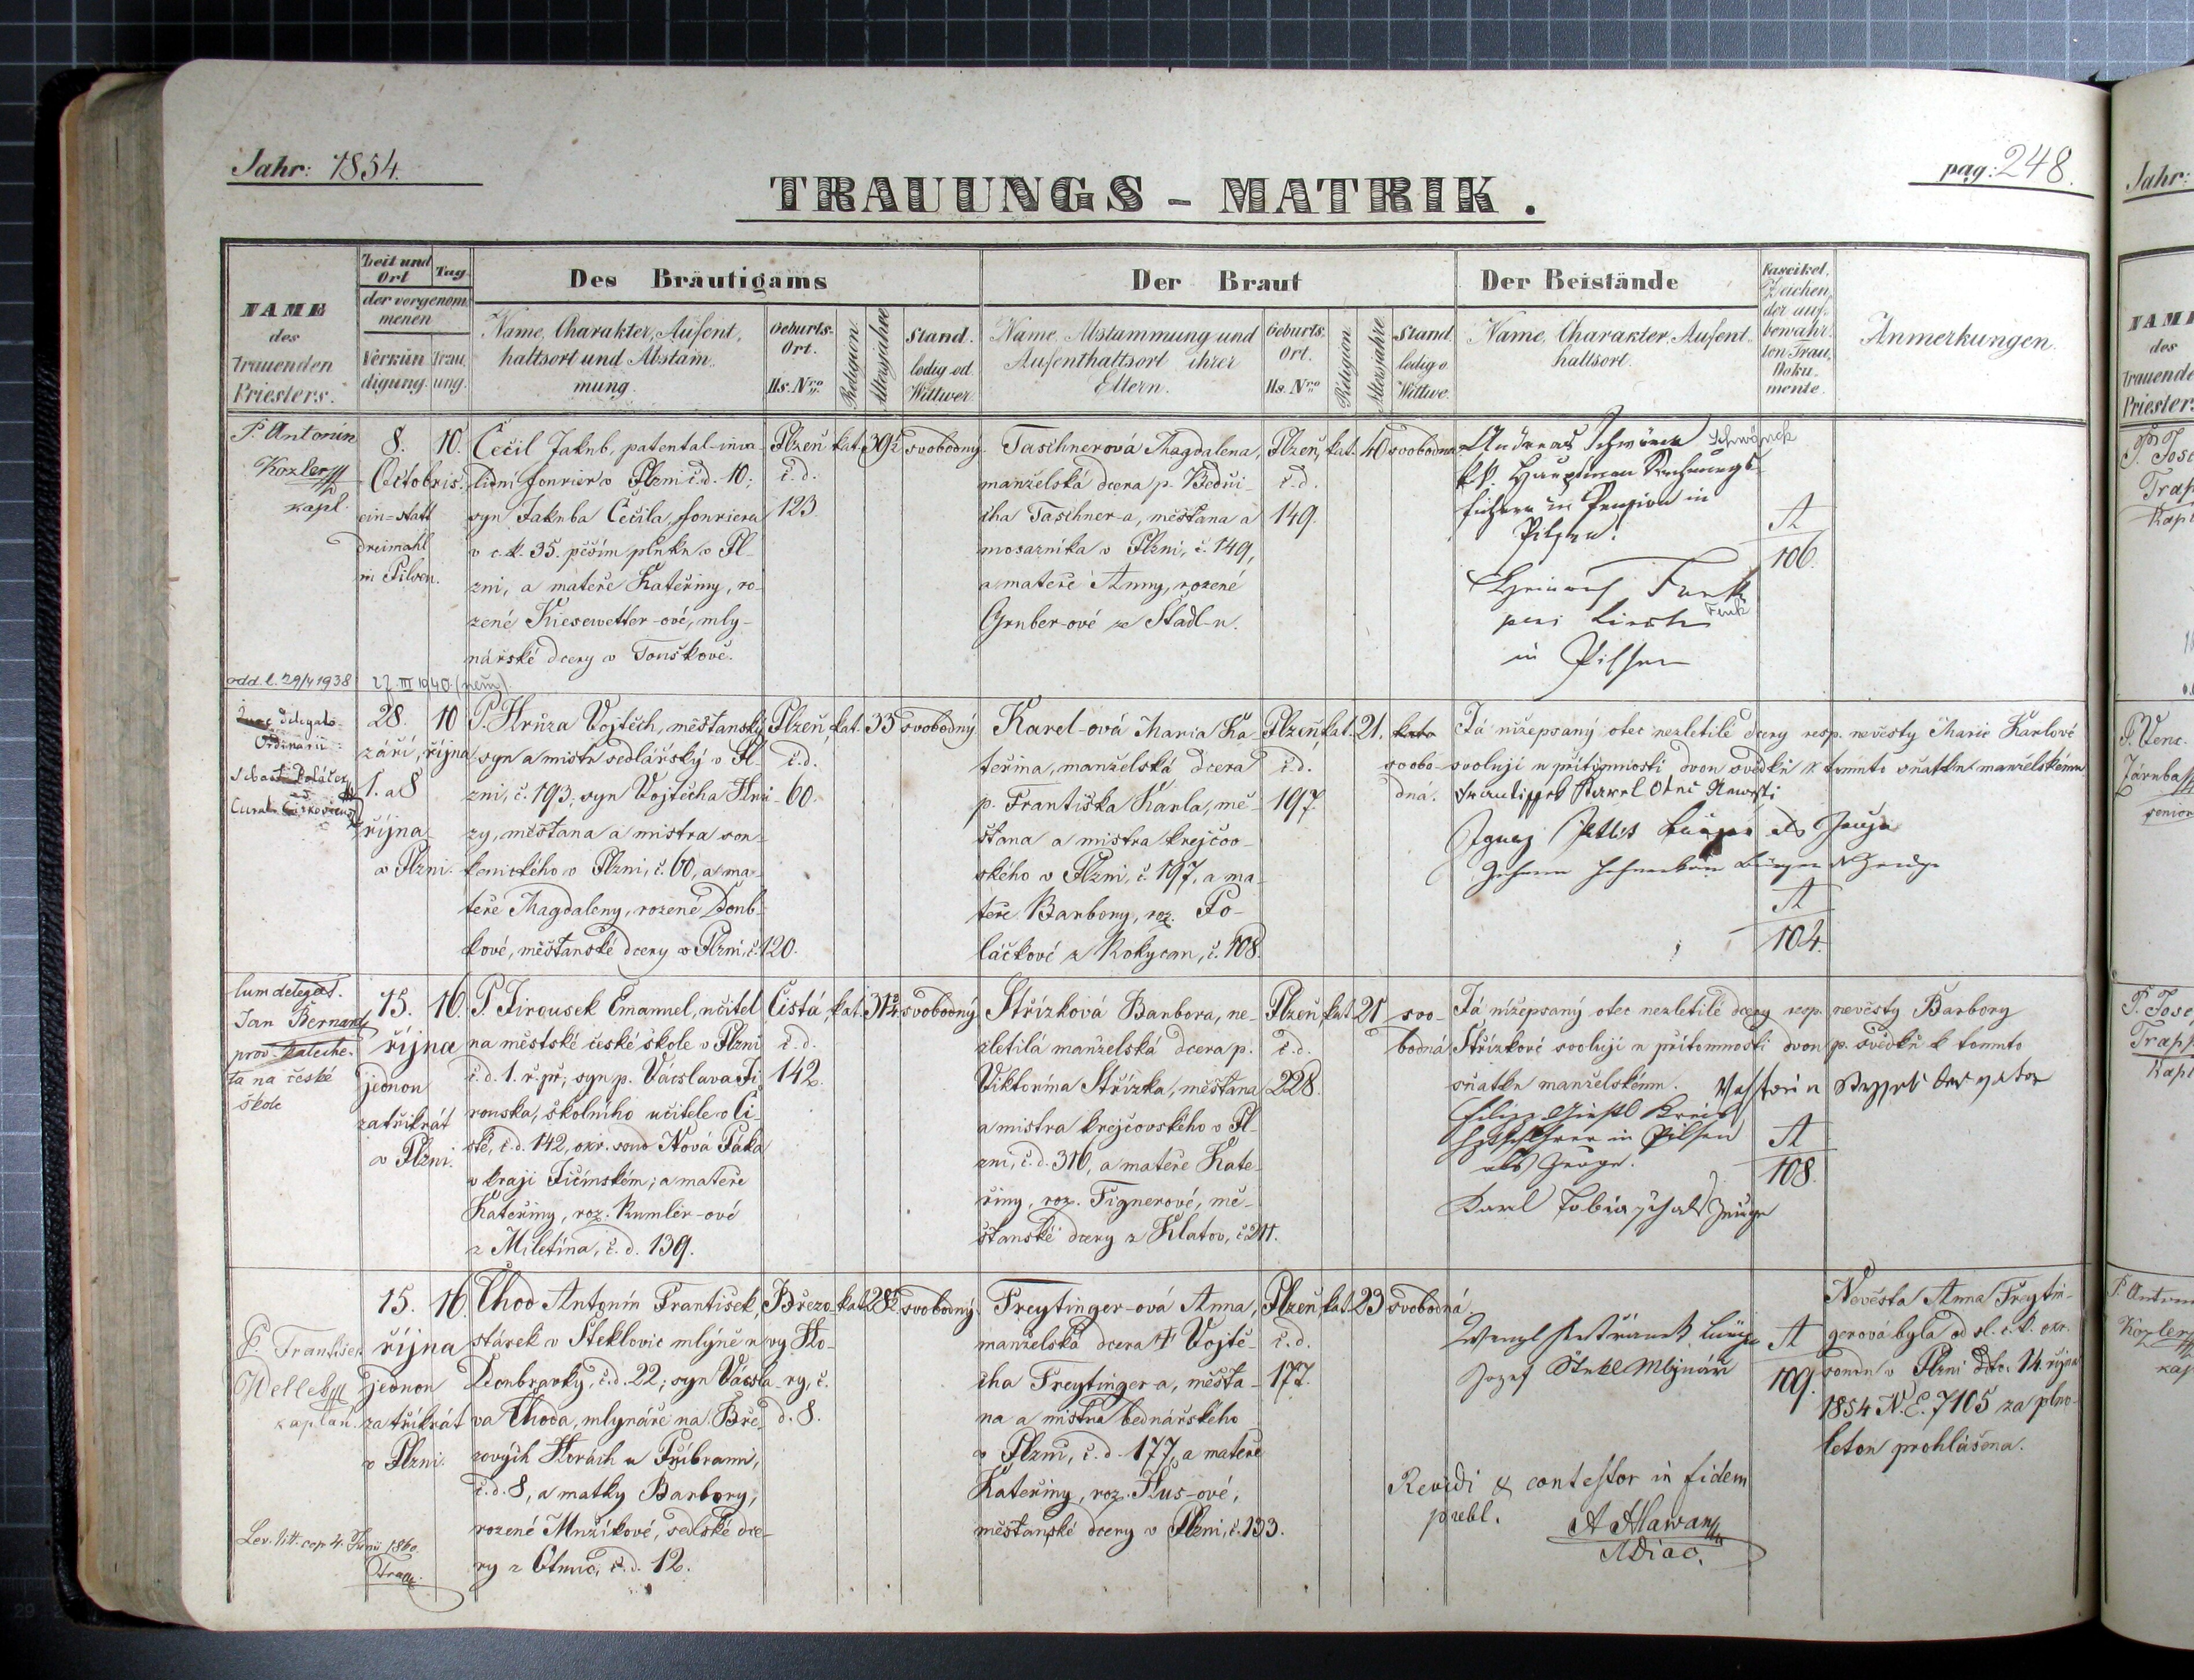 Jahr: 1854.
pag: 248.
TRAUUNGS - MATRIK.
NAME
des
trauenden
Priesters.
Zeit und
Ort
Tag
der vorgenom
menen
Verkün
digung.
Trau,
ung.
Des Bräutigams
Name, Charakter, Aufent,
haltsort und Abstam,
mung.
Geburts-
Ort.
Hs. Nro
Religion
Altersjahre
Stand.
ledig od.
Wittwer.
Der Braut
Name, Abstammung und
Aufenthaltsort ihrer
Eltern.
Geburts.
Ort.
Hs. Nro
Religion
Altersjahre.
Stand
ledig o.
Wittwe.
Der Beistände
Name, Charakter, Aufent-
haltsort.
Fascikel,
Zeichen,
der auf-
bewahr-
ten Trau,
Doku-
mente.
Anmerkungen.
P. Antonín
Kozler
kapl.
8.
Octobris
ein=statt
dreimahl
in Pilsen.
10.
Čečil Jakub, patental-inva-
lidní fourier v Plzni č.d. 10;
syn Jakuba Čečila, fouriera
v c.k. 35. pěším pluku v Pl-
zni, a mateře Kateřiny, ro-
zené Kiesewetter-ové, mly-
nářské dcery v Touškově.
Plzeň
č.d.
123
kat.
39½
svobodný
Taschnerová Magdalena,
manželská dcera p. Bedři-
cha Taschner-a, měšťana a
mosazníka v Plzni, č. 149,
a mateře Anny, rozené
Gruber-ové ze Stadl-u.
Plzeň,
č.d.
149.
kat.
40
svobodna
Andreas Schwänck Schwänck
kk. Hauptman Rechnungs-
führer in Pension in
Pilsen.
Heinrich Funk
Funk
in Pilsen
A
106.
odd. l. 29/4 1938
27. III 1940. (něm)
delegato
Ordinarii
28.
září,
1. a 8
října
v Plzni.
10
října
P. Hruza Vojtěch, měšťanský
syn a mistr sedlářský v Pl-
zni, č. 193; syn Vojtěcha Hru-
zy, měšťana a mistra sou-
kenického v Plzni, č. 60, a ma-
teře Magdaleny, rozené Doub-
kové, měšťanské dcery v Plzni, č. 120.
Plzeň,
č.d.
60.
kat.
33
svobodný
Karel-ová Maria Ka-
teřina, manželská dcera
p. Františka Karla, mě-
šťana a mistra krejčov-
ského v Plzni, č. 197, a ma-
teře Barbory, roz. Po-
láčkové z Rokycan, č. 108.
Plzeň,
č.d.
197
kat.
21.
svobo-
dná.
Já nížepsaný otec nezletilé dcery resp. nevěsty Marie Karlové
svoluji u přítomnosti dvou svědků k tomuto sňatku manželskému
Frantissek Karel Otec Newesti
als Zeuge
Bürger als Zeuge
A
104.
cum delegat.
Jan Bernard
prov. Kateche-
ta na české
škole
15.
října
jednou
za třikrát
v Plzni.
16.
P. Jirousek Emanuel, učitel
na městské české škole v Plzni
č.d. 1. ř. př; syn p. Vácslava Ji-
rouska, školního učitele v Či-
sté, č.d. 142, okr. soud Nová Paka
v kraji Jičínském; a mateře
Kateřiny, roz. Rumler-ové
z Miletína, č.d. 139.
Čistá,
č.d.
142.
kat.
31
svobodný
Střízková Barbora, ne-
zletilá manželská dcera p.
Viktorina Střízka, měšťana
a mistra krejčovského v Pl-
zni, č.d. 316, a mateře Kate-
řiny, roz. Fignerové, mě-
šťanské dcery z Klatov, č. 211.
Plzeň,
č.d.
228.
kat
21
svo-
bodná
Já nížepsaný otec nezletilé dcery resp. nevěsty Barbory
Střízkové svoluji u přítomnosti dvou p. svědků k tomuto
sňatku manželskému.
in Pilsen
als Zeuge.
Karl Tobiasch als Zeuge
A
108.
P. František
Welleb
kaplan.
15.
října
jednou
za třikrát
v Plzni.
16.
Chod Antonín František,
stárek v Steklovic mlýně u
Doubravky, č.d. 22; syn Vácsla-
va Choda, mlynáře na Bře-
zových Horách u Příbrami,
č.d. 8, a matky Barbory,
rozené Mužíkové, sedlské dce-
ry z Otmíč, č.d. 12.
Březo-
vy Ho-
ry, č.
d. 8.
kat.
28½
svobodný.
Freytinger-ová Anna,
manželská dcera † Vojtě-
cha Freytinger-a, měšťa-
na a mistra bednářského
v Plzni, č.d. 177, a mateře
Kateřiny, roz. Hus-ové,
měšťanské dcery v Plzni, č. 133.
Plzeň,
č.d.
177.
kat.
23
svobodná.
Jozef Stekl Mlynář
A
109.
Nevěsta Anna Freytin-
gerová byla od sl. c.k. okr.
soudu v Plzni dto. 14. října
1854 N. E. 7105 za plno-
letou prohlášena.
Revidi & contestor in fidem
publ.
A Hlawan
ADiac.
Lev. litt. cop. 4. Junii 1860.
Jahr:
NAM
des
trauende
Priester
P. Jose
Trap
Kapl
P. Venc.
Záruba
senior
P. Jose
Trapp
Kapl
P. Anton
Kozler
kap